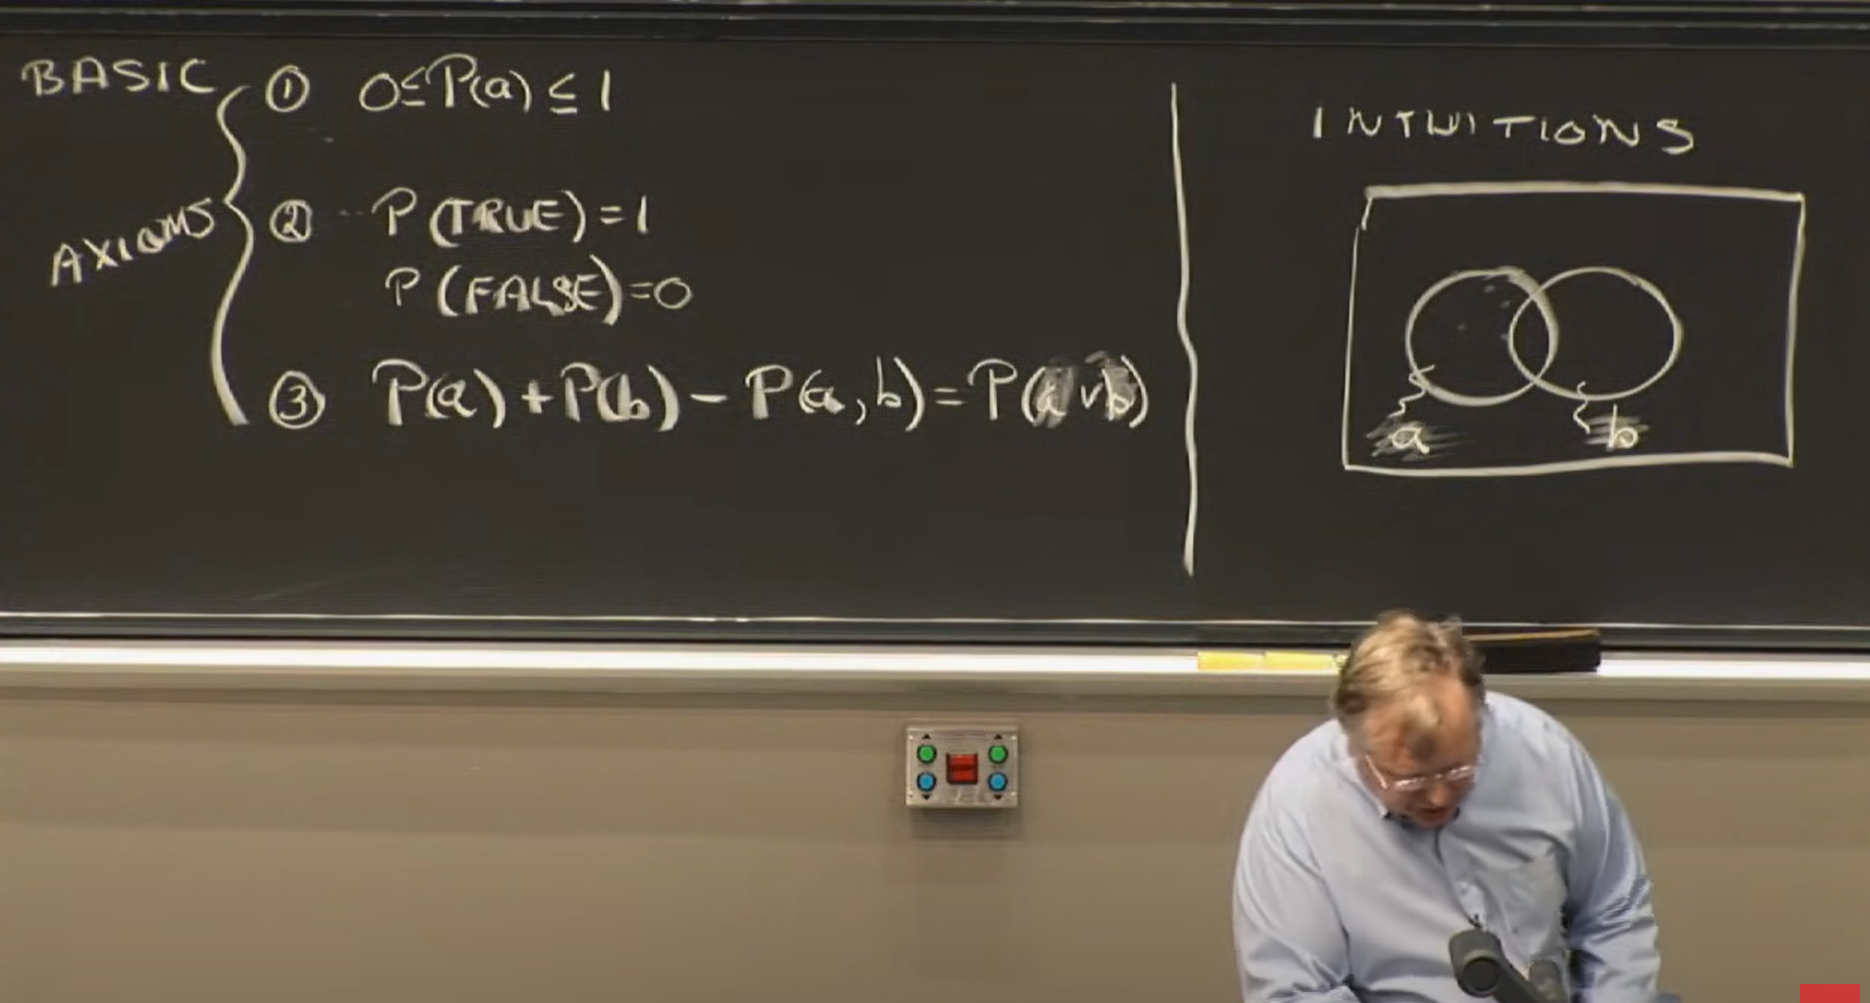 BASIC
AXIOMS
① 0≤P(a)≤1
② P(TRUE)=1
P(FALSE)=0
③ P(a)+P(b)-P(a,b)=P(a∨b)
INTUITIONS
a
b